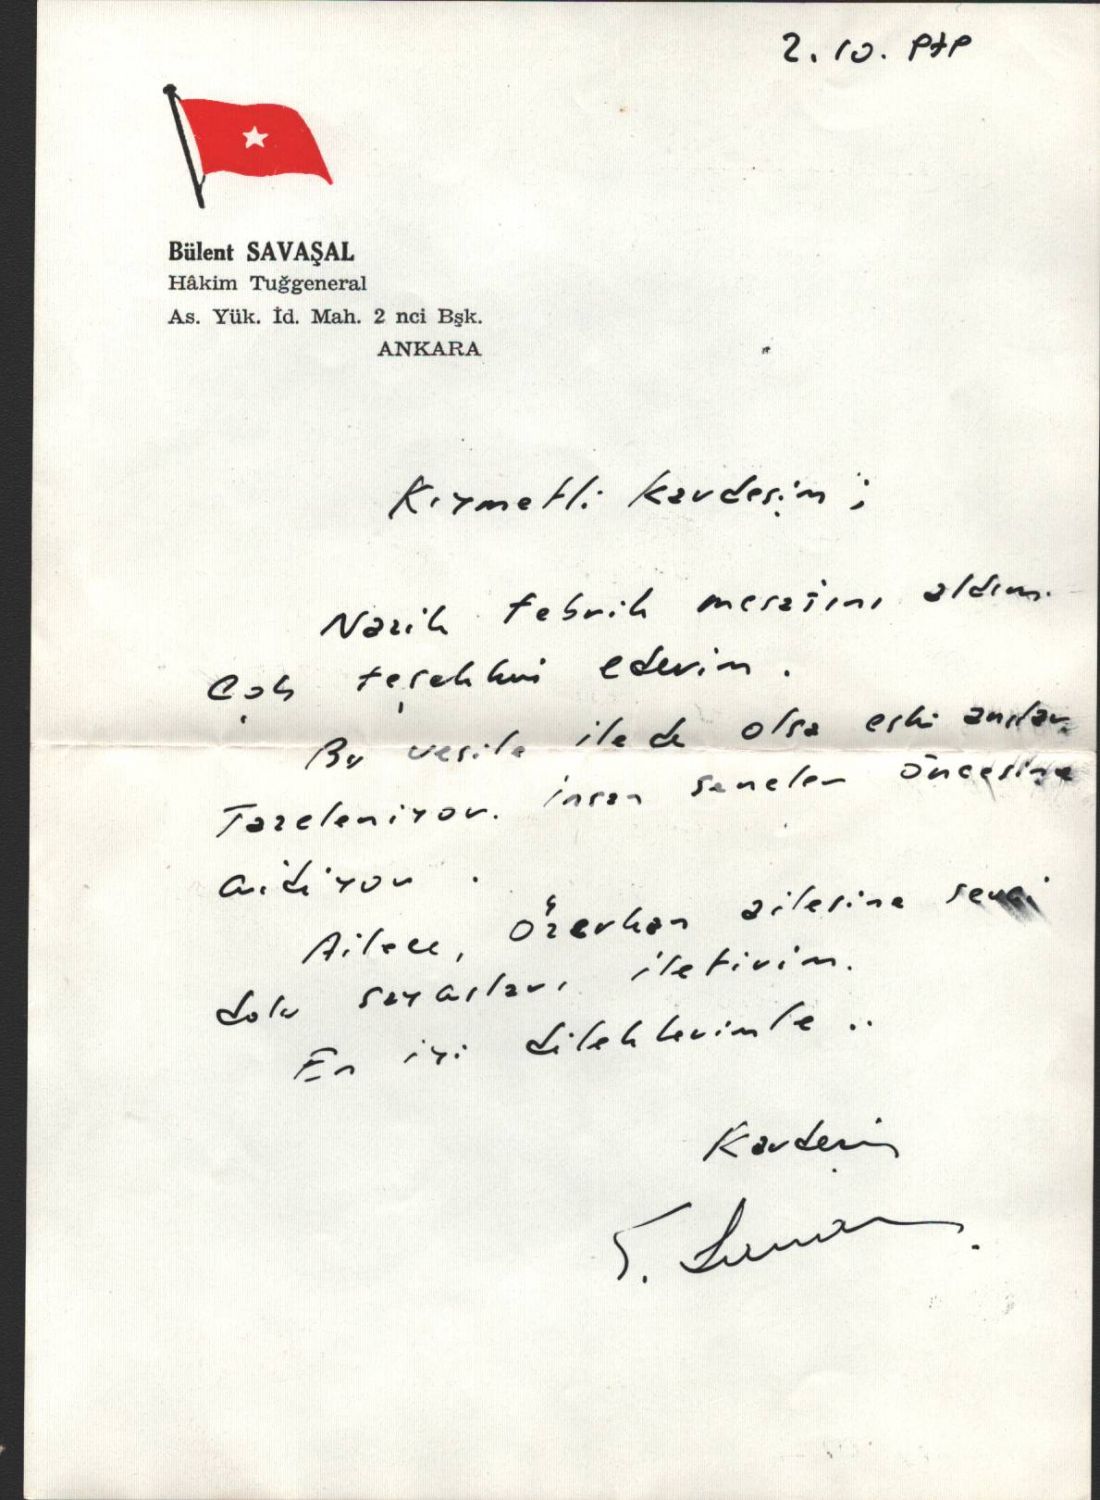 2. 10.
Bülent SAVAŞAL
Hâkim Tuğgeneral
As. Yük. İd. Mah. 2 nci Bşk.
ANKARA
Kıymetli Kardeşim ;
Nazik tebrik mesajını aldım.
Çok teşekkür ederim .
Bu vesile ile de olsa eski anılar
Tazeleniyor. İnsan seneler öncesine
Gidiyor .
Ailece, Özerkan ailesine sevgi
dolu saygıları iletirim.
En iyi dileklerimle ..
Kardeşin